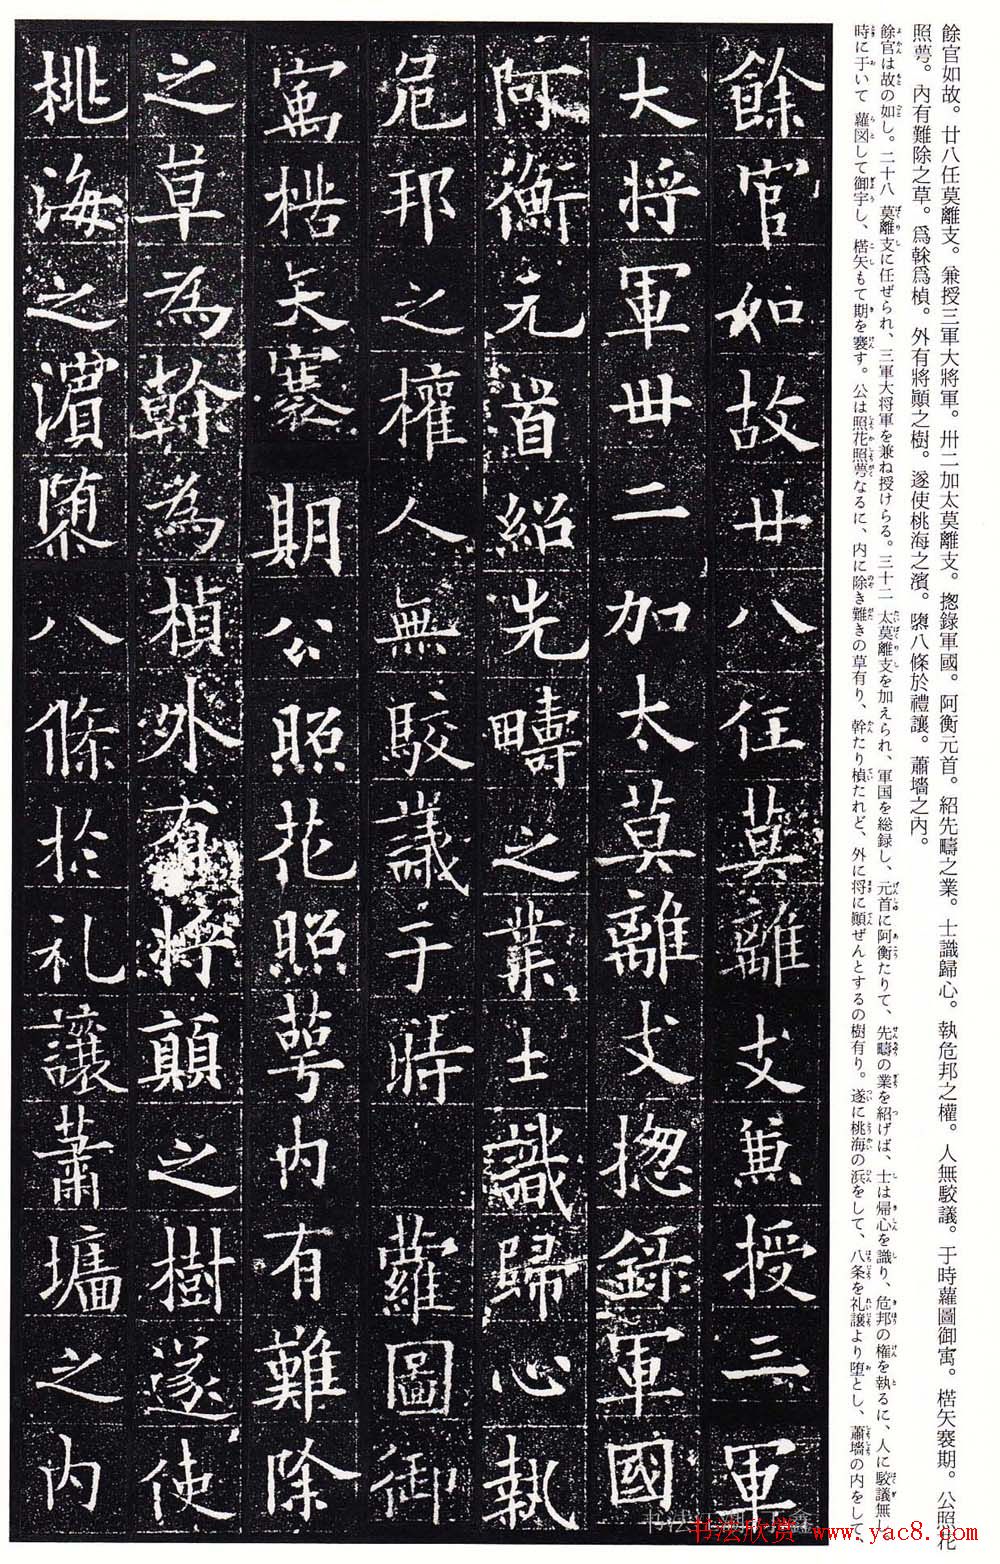 餘官如故。廿八任莫離支。兼授三軍大將軍。卅二加太莫離支。揔錄軍國。阿衡元首。紹先疇之業。士識歸心。執危邦之權。人無駮議。于時蘿圖御寓。楛矢褰期。公照花
照萼。內有難除之草。爲榦爲楨。外有將顚之樹。遂使桃海之濱。隳八條於禮讓。蕭墻之內。
餘官は故の如し。二十八 莫離支に任ぜられ、三軍大将軍を兼ね授けらる。三十二 太莫離支を加えられ、軍国を総録し、元首に阿衡たりて、先疇の業を紹げば、士は帰心を識り、危邦の権を執るに、人に駮議無し
時に于いて 蘿図して御宇し、楛矢もて期を褰す。公は照花照萼なるに、内に除き難きの草有り、幹たり楨たれど、外に将に顚ぜんとするの樹有り。遂に桃海の浜をして、八条を礼譲より堕とし、蕭墻の内をして
餘官如故廿八任莫離支兼授三軍
大将軍卌二加太莫離支揔錄軍國
阿衡元首紹先疇之業士識歸心執
危邦之權人無駮議于時蘿圖御
寓楛矢褰期公照花照萼内有難除
之草為榦為楨外有将顛之樹遂使
桃海之濱隳八條於礼讓蕭墉之内
书法欣赏 www.yac8.com